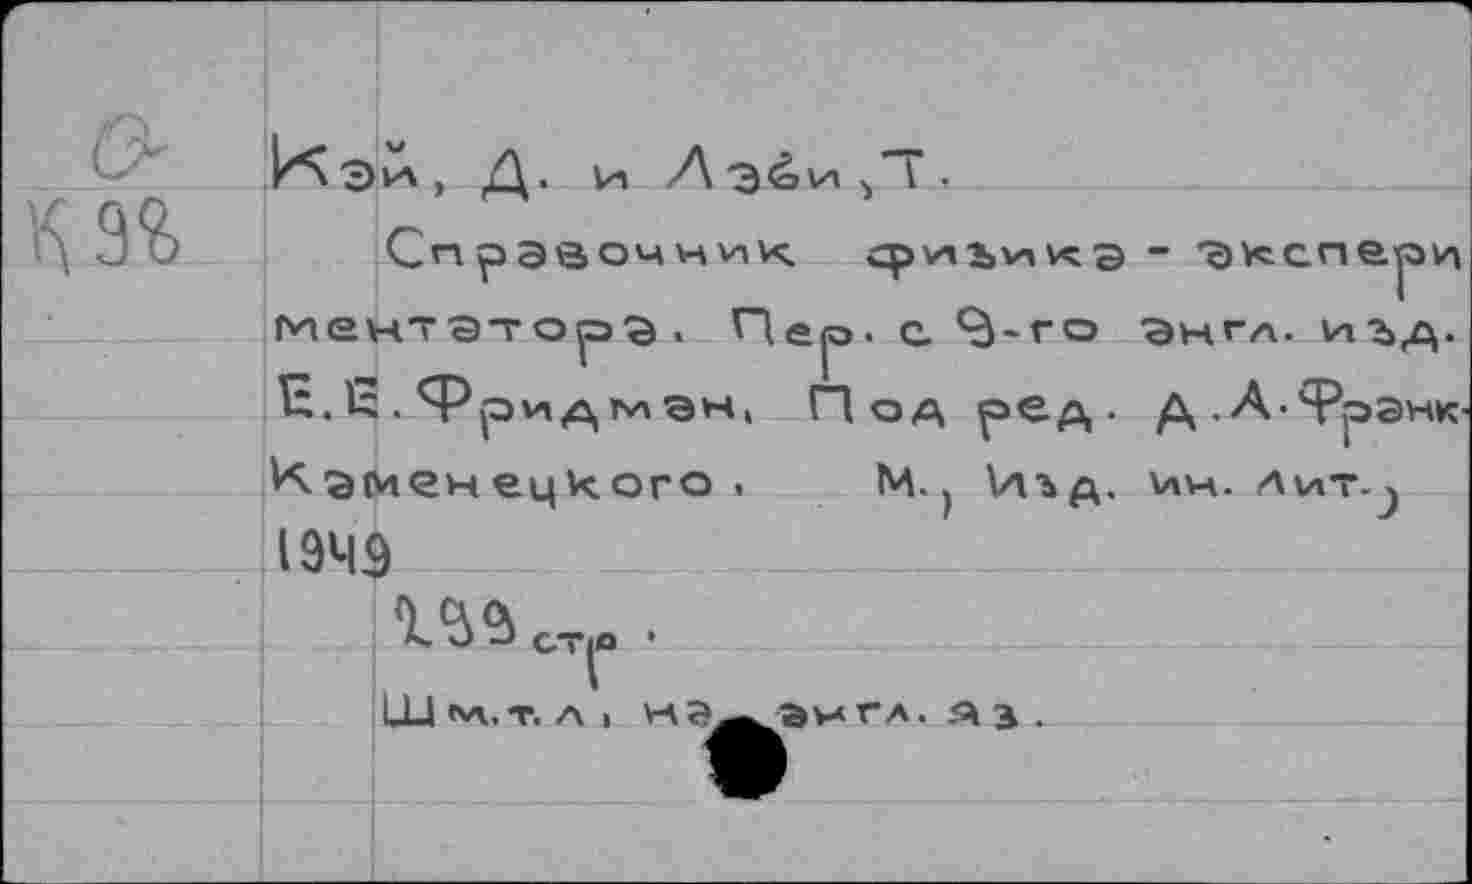 а
К98
Кэй, Д. и Лэби, Т.
Справочник физика - экспери
ментатора. Пер. с 9-го англ. изд.
Е.Е. Фридман, Под ред. Д.А.Франк-
Каменецкого. М., Изд. ин. лит.,
1949
299 стр.
Ш м.т.л, на англ. яз.